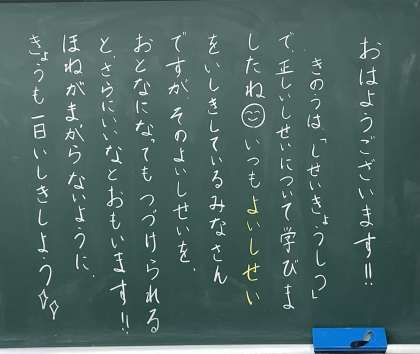 おはようございます!!
きのうは「しせいきょうしつ」
で正しいしせいについて学びま
したね☺いつもよいしせい
をいしきしているみなさん
ですが、そのよいしせいを、
おとなになってもつづけられる
と、さらにいいなとおもいます!!
ほねがまがらないように、
きょうも一日いしきしよう✨